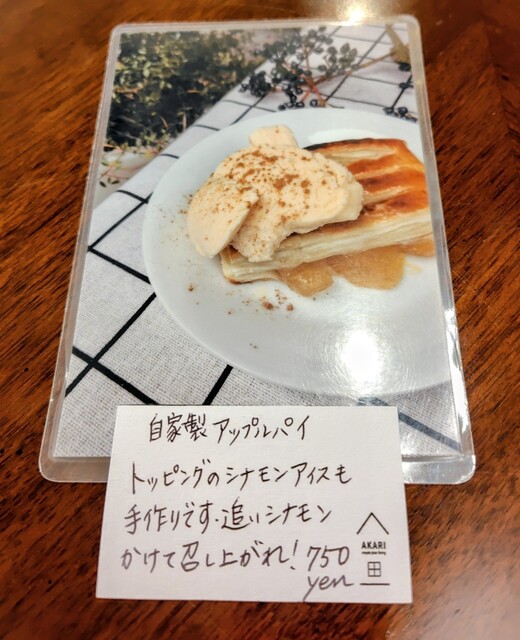 自家製アップルパイ
トッピングのシナモンアイスも
手作りです。追いシナモン
かけて召し上がれ!750
yen
AKARI